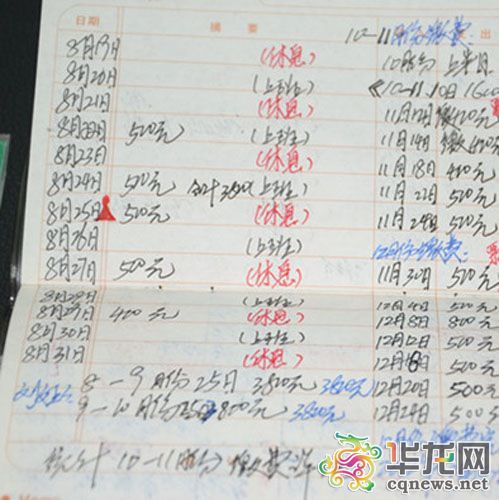 日期
摘要
10-11月份缴费
出
8月19日 (休息)
10月份 上半月
8月20日 (上班)
8月21日 (休息)
8月22日 500元 (上班)
8月23日 (休息)
11月14日
8月24日 500元 合计3800 (上班)
11月18日 400元
8月25日 500元 (休息)
11月22日 500元
11月24日 500元
8月26日 (上班)
12月份缴费:
8月27日 500元 (休息)
11月30日 500元
8月28日 (上班)
12月4日 500元
8月29日 400元 (休息)
12月8日 800元
8月30日 (上班)
12月12日 500元
8月31日 (休息)
500元
8-9月份25日 3800元 3800元
12月20日 500元
9-10月份25日 3800元 3800元
12月24日 500元
统计 10-11月份 缴费
华龙网
cqnews.net